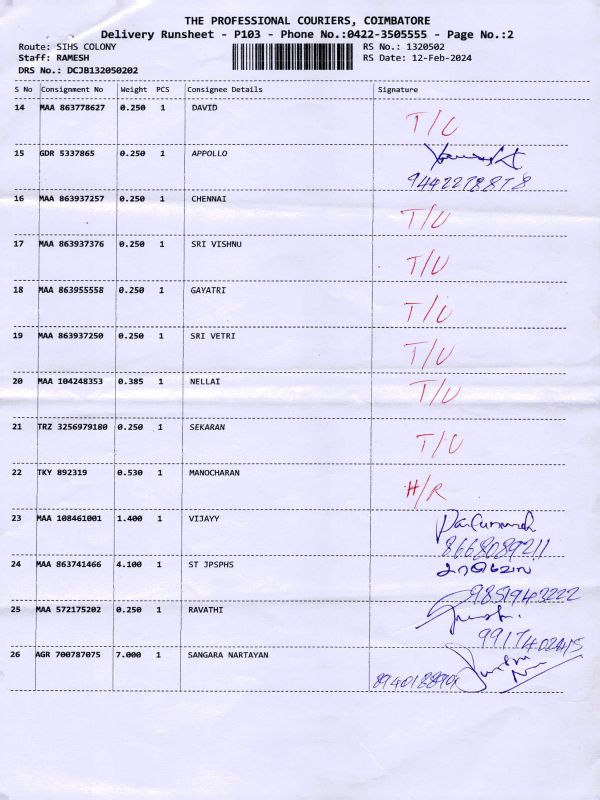 THE PROFESSIONAL COURIERS, COIMBATORE
Delivery Runsheet - P103 - Phone No.:0422-3505555 - Page No.:2
Route: SIHS COLONY RS No.: 1320502
Staff: RAMESH RS Date: 12-Feb-2024
DRS No.: DCJB132050202
S No Consignment No Weight PCS Consignee Details Signature
14 MAA 863778627 0.250 1 DAVID T/U
15 GDR 5337865 0.250 1 APPOLLO
9442278878
16 MAA 863937257 0.250 1 CHENNAI T/U
17 MAA 863937376 0.250 1 SRI VISHNU T/U
18 MAA 863955558 0.250 1 GAYATRI T/U
19 MAA 863937250 0.250 1 SRI VETRI T/U
20 MAA 104248353 0.385 1 NELLAI T/U
21 TRZ 3256979180 0.250 1 SEKARAN T/U
22 TKY 892319 0.530 1 MANOCHARAN H/R
23 MAA 108461001 1.400 1 VIJAYY
8668089211
24 MAA 863741466 4.100 1 ST JPSPHS
9851942222
25 MAA 572175202 0.250 1 RAVATHI
9917402415
26 AGR 700787075 7.000 1 SANGARA NARTAYAN